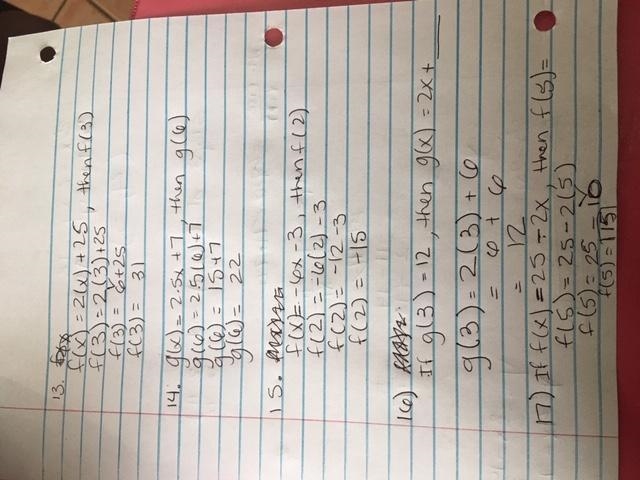 13.
f(x) = 2(x) + 25, then f(3)
f(3) = 2(3) + 25
f(3) = 6 + 25
f(3) = 31
14. g(x) = 2.5x + 7, then g(6)
g(6) = 2.5(6) + 7
g(6) = 15 + 7
g(6) = 22
15.
f(x) = -6x - 3, then f(2)
f(2) = -6(2) - 3
f(2) = -12 - 3
f(2) = -15
16)
If g(3) = 12, then g(x) = 2x + __
g(3) = 2(3) + 6
= 6 + 6
= 12
17) If f(x) = 25 - 2x, then f(5) =
f(5) = 25 - 2(5)
f(5) = 25 - 10
f(5) = 15